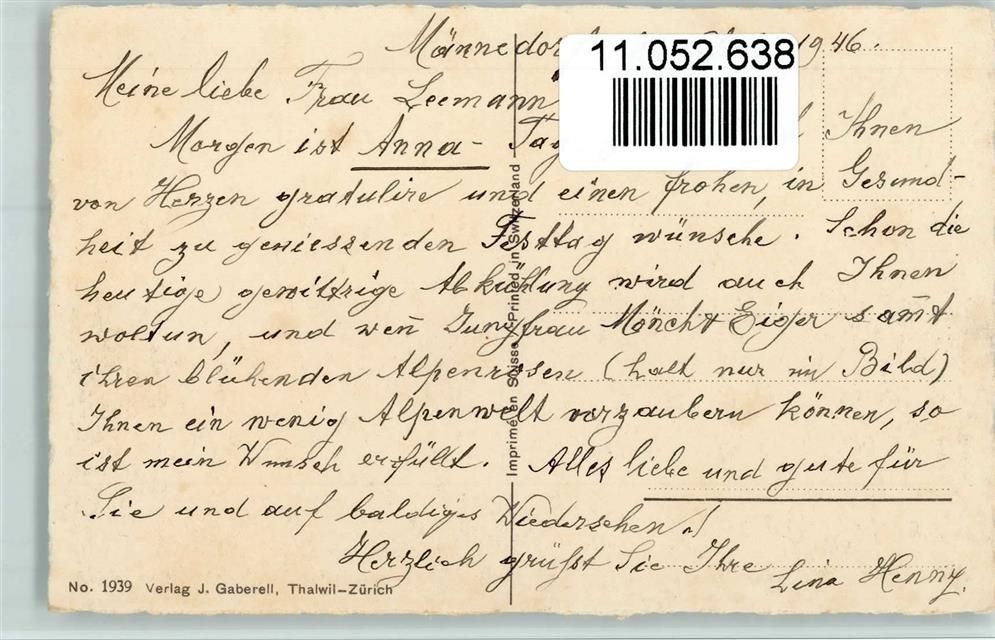 Männedorf 1946.
11.052.638
Meine liebe Frau Leemann
Morgen ist Anna- Tag Ihnen
von Herzen gratulire und einen frohen, in Gesund-
heit zu geniessenden Festtag wünsche. Schon die
heutige gewittrige Abkühlung wird auch Ihnen
woltun, und weñ Jungfrau Mönch & Eiger sam̃t
ihren blühenden Alpenrosen (halt nur im Bild)
Ihnen ein wenig Alpenwelt vorzaubern können, so
ist mein Wunsch erfüllt. Alles liebe und gute für
Sie und auf baldiges Wiedersehen!
Herzlich grüsst Sie Ihre
Lina Henny.
No. 1939 Verlag J. Gaberell, Thalwil-Zürich
Imprimé en Suisse - Printed in Switzerland